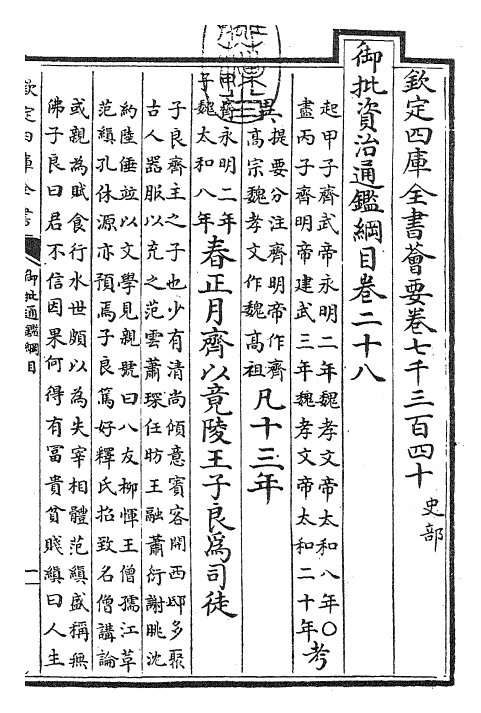 欽定四庫全書薈要卷七千三百四十 史部
御批資治通鑑綱目卷二十八
起甲子齊武帝永明二年魏孝文帝太和八年○
盡丙子齊明帝建武三年魏孝文帝太和二十年考
異提要分注齊明帝作齊
高宗魏孝文作魏高祖
凡十三年
甲齊永明二年
子魏太和八年
春正月齊以竟陵王子良為司徒
子良齊主之子也少有清尚傾意賓客開西邸多聚
古人器服以充之范雲蕭琛任昉王融蕭衍謝朓沈
約陸倕並以文學見親號曰八友柳惲王僧孺江革
范縝孔休源亦預焉子良篤好釋氏招致名僧講論
或親為賦食行水世頗以為失宰相體范縝盛稱無
佛子良曰君不信因果何得有富貴貧賤縝曰人生
欽定四庫全書
御批通鑑綱目
一